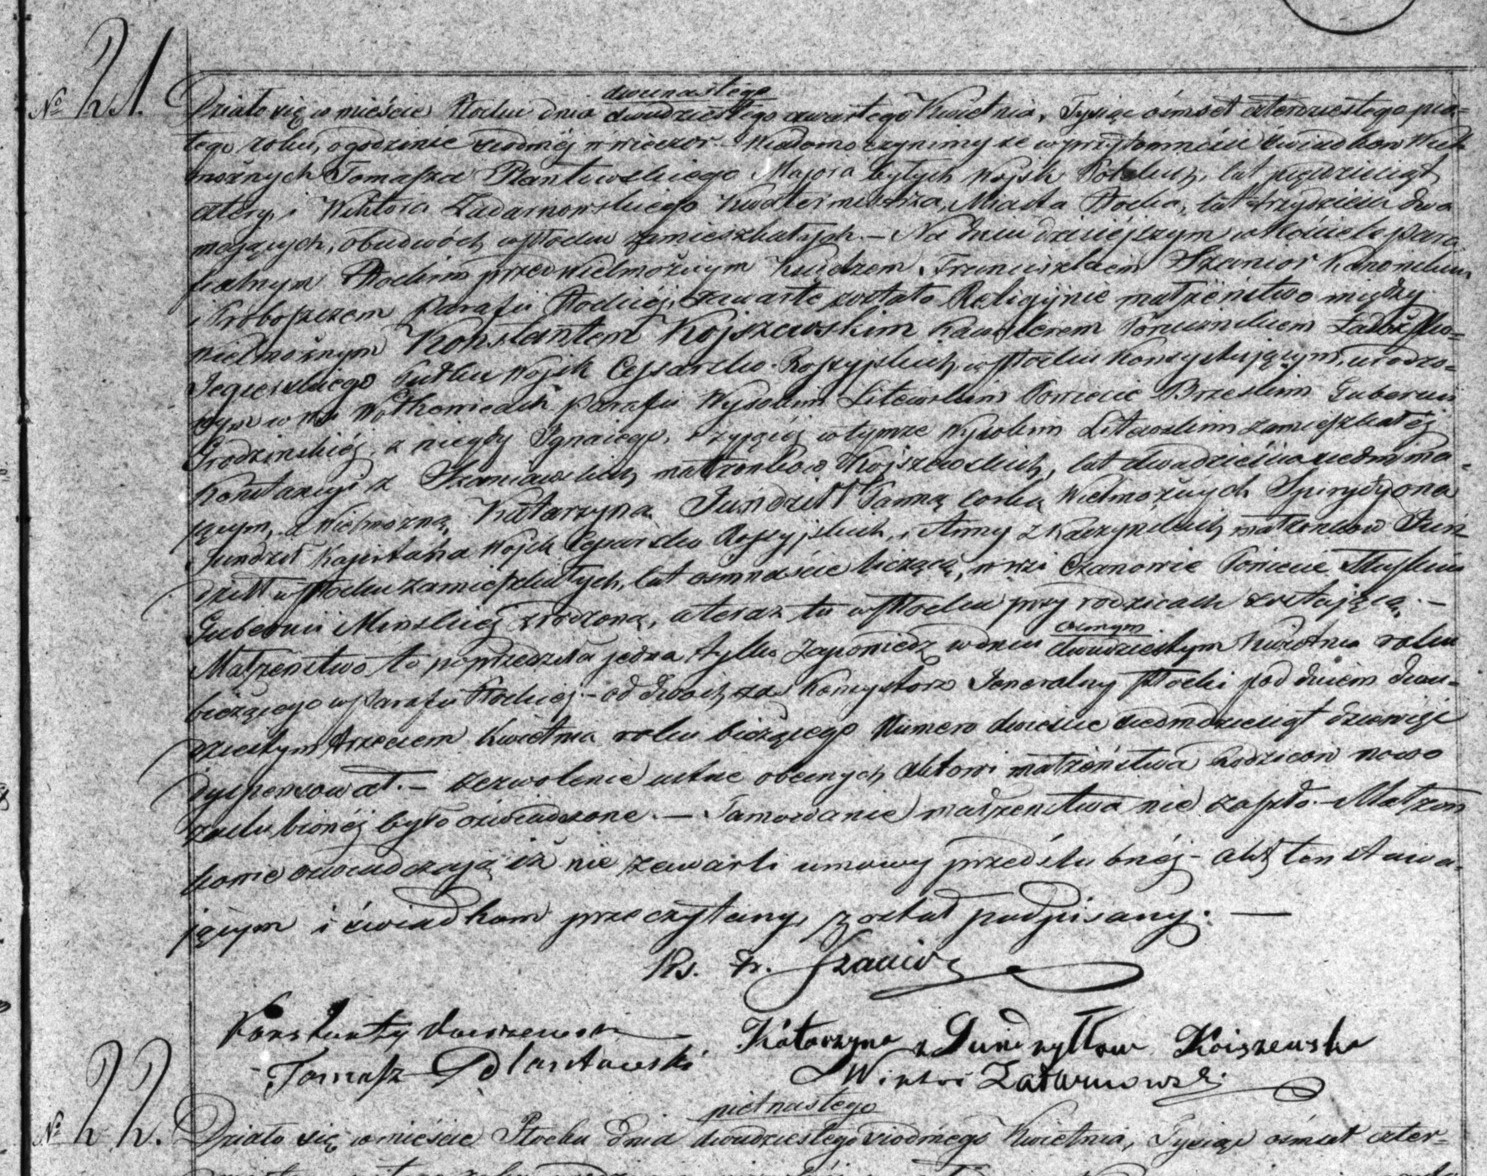 № 21.
dwunastego
Działo się w mieście Płocku dnia dwudziestego czwartego Kwietnia, Tysiąc ośmset czterdziestego pią-
tego roku, o godzinie siodméj w wieczor. Wiadomo czynimy że w przytomności świadków Wiel
możnych Tomasza Plantowskiego Majora byłych Wojsk Polskich, lat pięćdziesiąt
cztery, i Wiktora Zadarnowskiego Kwatermistrza Miasta Płocka, lat trzydzieści dwa
mających, obudwóch w Płocku zamieszkałych. — Na dniu dzisiéjszym w Kościele para
fialnym Płockim przed Wielmożnym Księdzem Franciszkiem Szanior Kanonikiem
i Proboszczem Parafii Płockiéj, zawarte zostało Religijnie małżeństwo między
Wielmożnym Konstantem Kojszewskim Kawalerem Porucznikiem
Pułku Wojsk Cesarsko-Rossyjskich, w Płocku Konsystującym, urodzo-
nym w Parafii Wysokim Litewskim Powiecie Brzeskim Gubernii
Grodzinskiéj, z niegdy Ignacego, i żyjącéj w tymże Wysokim Litewskim zamieszkałéj
Konstancyi z Szaniawskich małżonków Kojszewskich, lat dwadzieścia siedm ma-
jącym, a Wielmożną Katarzyną Jundziłł Panną corką Wielmożnych Spirydyona
Jundził Kapitana Wojsk Cesarsko Rossyjskich, i Anny z małżonków Jun-
dziłł w Płocku zamieszkałych, lat osmnaście liczącą, w wsi Czanowie Powiecie Słuckim
Gubernii Minskiéj zrodzoną, a teraz tu w Płocku przy rodzicach zostającą. —
osmym
Małżeństwo to poprzedziła jedna tylko Zapowiedz w dniu dwudziestym Kwietnia roku
bieżącego w Parafii Płockiéj — od dwóch zaś Konsystorz Jeneralny Płocki pod dniem dwu-
dziestym trzeciem Kwietnia roku bieżącego Numero dwieście siedmdziesiąt dziewięć
dyspensował. — Zezwolenie ustne obecnych aktowi małżeństwa Rodziców nowo
zaślubionéj było oświadczone. — Tamowanie małżeństwa nie zaszło. — Małżon
kowie oświadczają iż nie zawarli umowy przedślubnéj — akt ten stawa-
jącym i świadkom przeczytany, został podpisany. —
Ks. Fr. Szanior
Konstanty Koiszewski Katarzyna z Jundzyłłow Koiszewska
Tomasz Plantowski Wiktor Zatarnowski
№ 22.
pietnastego
Działo się w mieście Płocku dnia dwudziestego siodmego Kwietnia, Tysiąc ośmset czter-